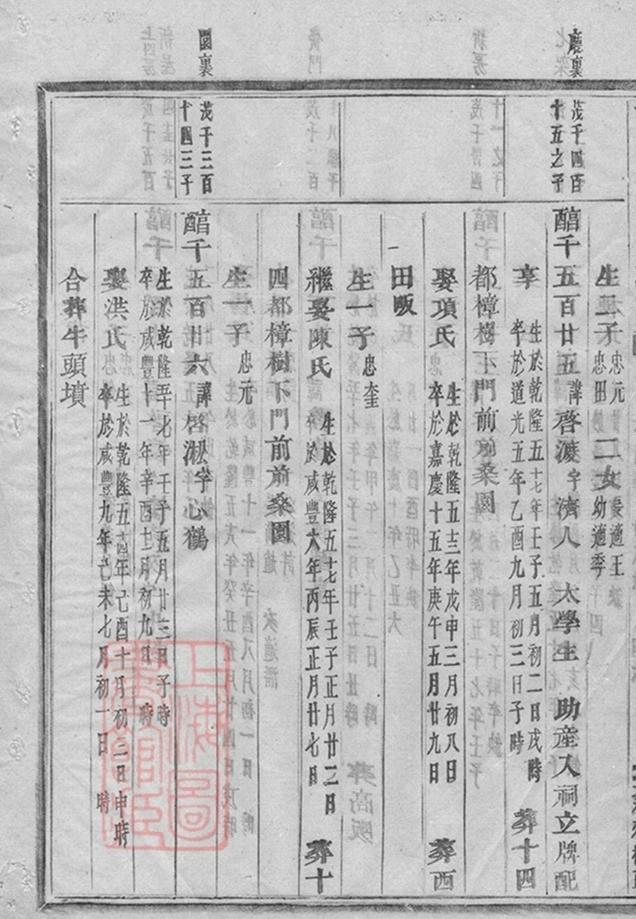 廳裏
茂千四百
十五之子
園裏
茂千三百
十四三子
生二子忠元
忠田
二女長適王
幼適季
醕千五百廿五諱啓渡字濟人 太學生 助產入祠立牌配
享
生於乾隆五十七年壬子五月初二日戌時
卒於道光五年乙酉九月初三日子時
葬十四
都樟樹下門前前桑園
娶項氏
生於乾隆五十三年戊申三月初八日
卒於嘉慶十五年庚午五月廿九日
葬西
田畈
生一子忠奎
繼娶陳氏
生於乾隆五十七年壬子正月廿二日
卒於咸豐六年丙辰正月廿七日
葬十
四都樟樹下門前前桑園
生一子忠元
醕千五百廿六諱啓淞字心鶴
生於乾隆五十七年壬子五月廿三日子時
卒於咸豐十一年辛酉十二月初九日 時
娶洪氏
生於乾隆五十四年己酉十月初二日申時
卒於咸豐九年己未七月初一日 時
合葬牛頭墳
上海圖書館藏